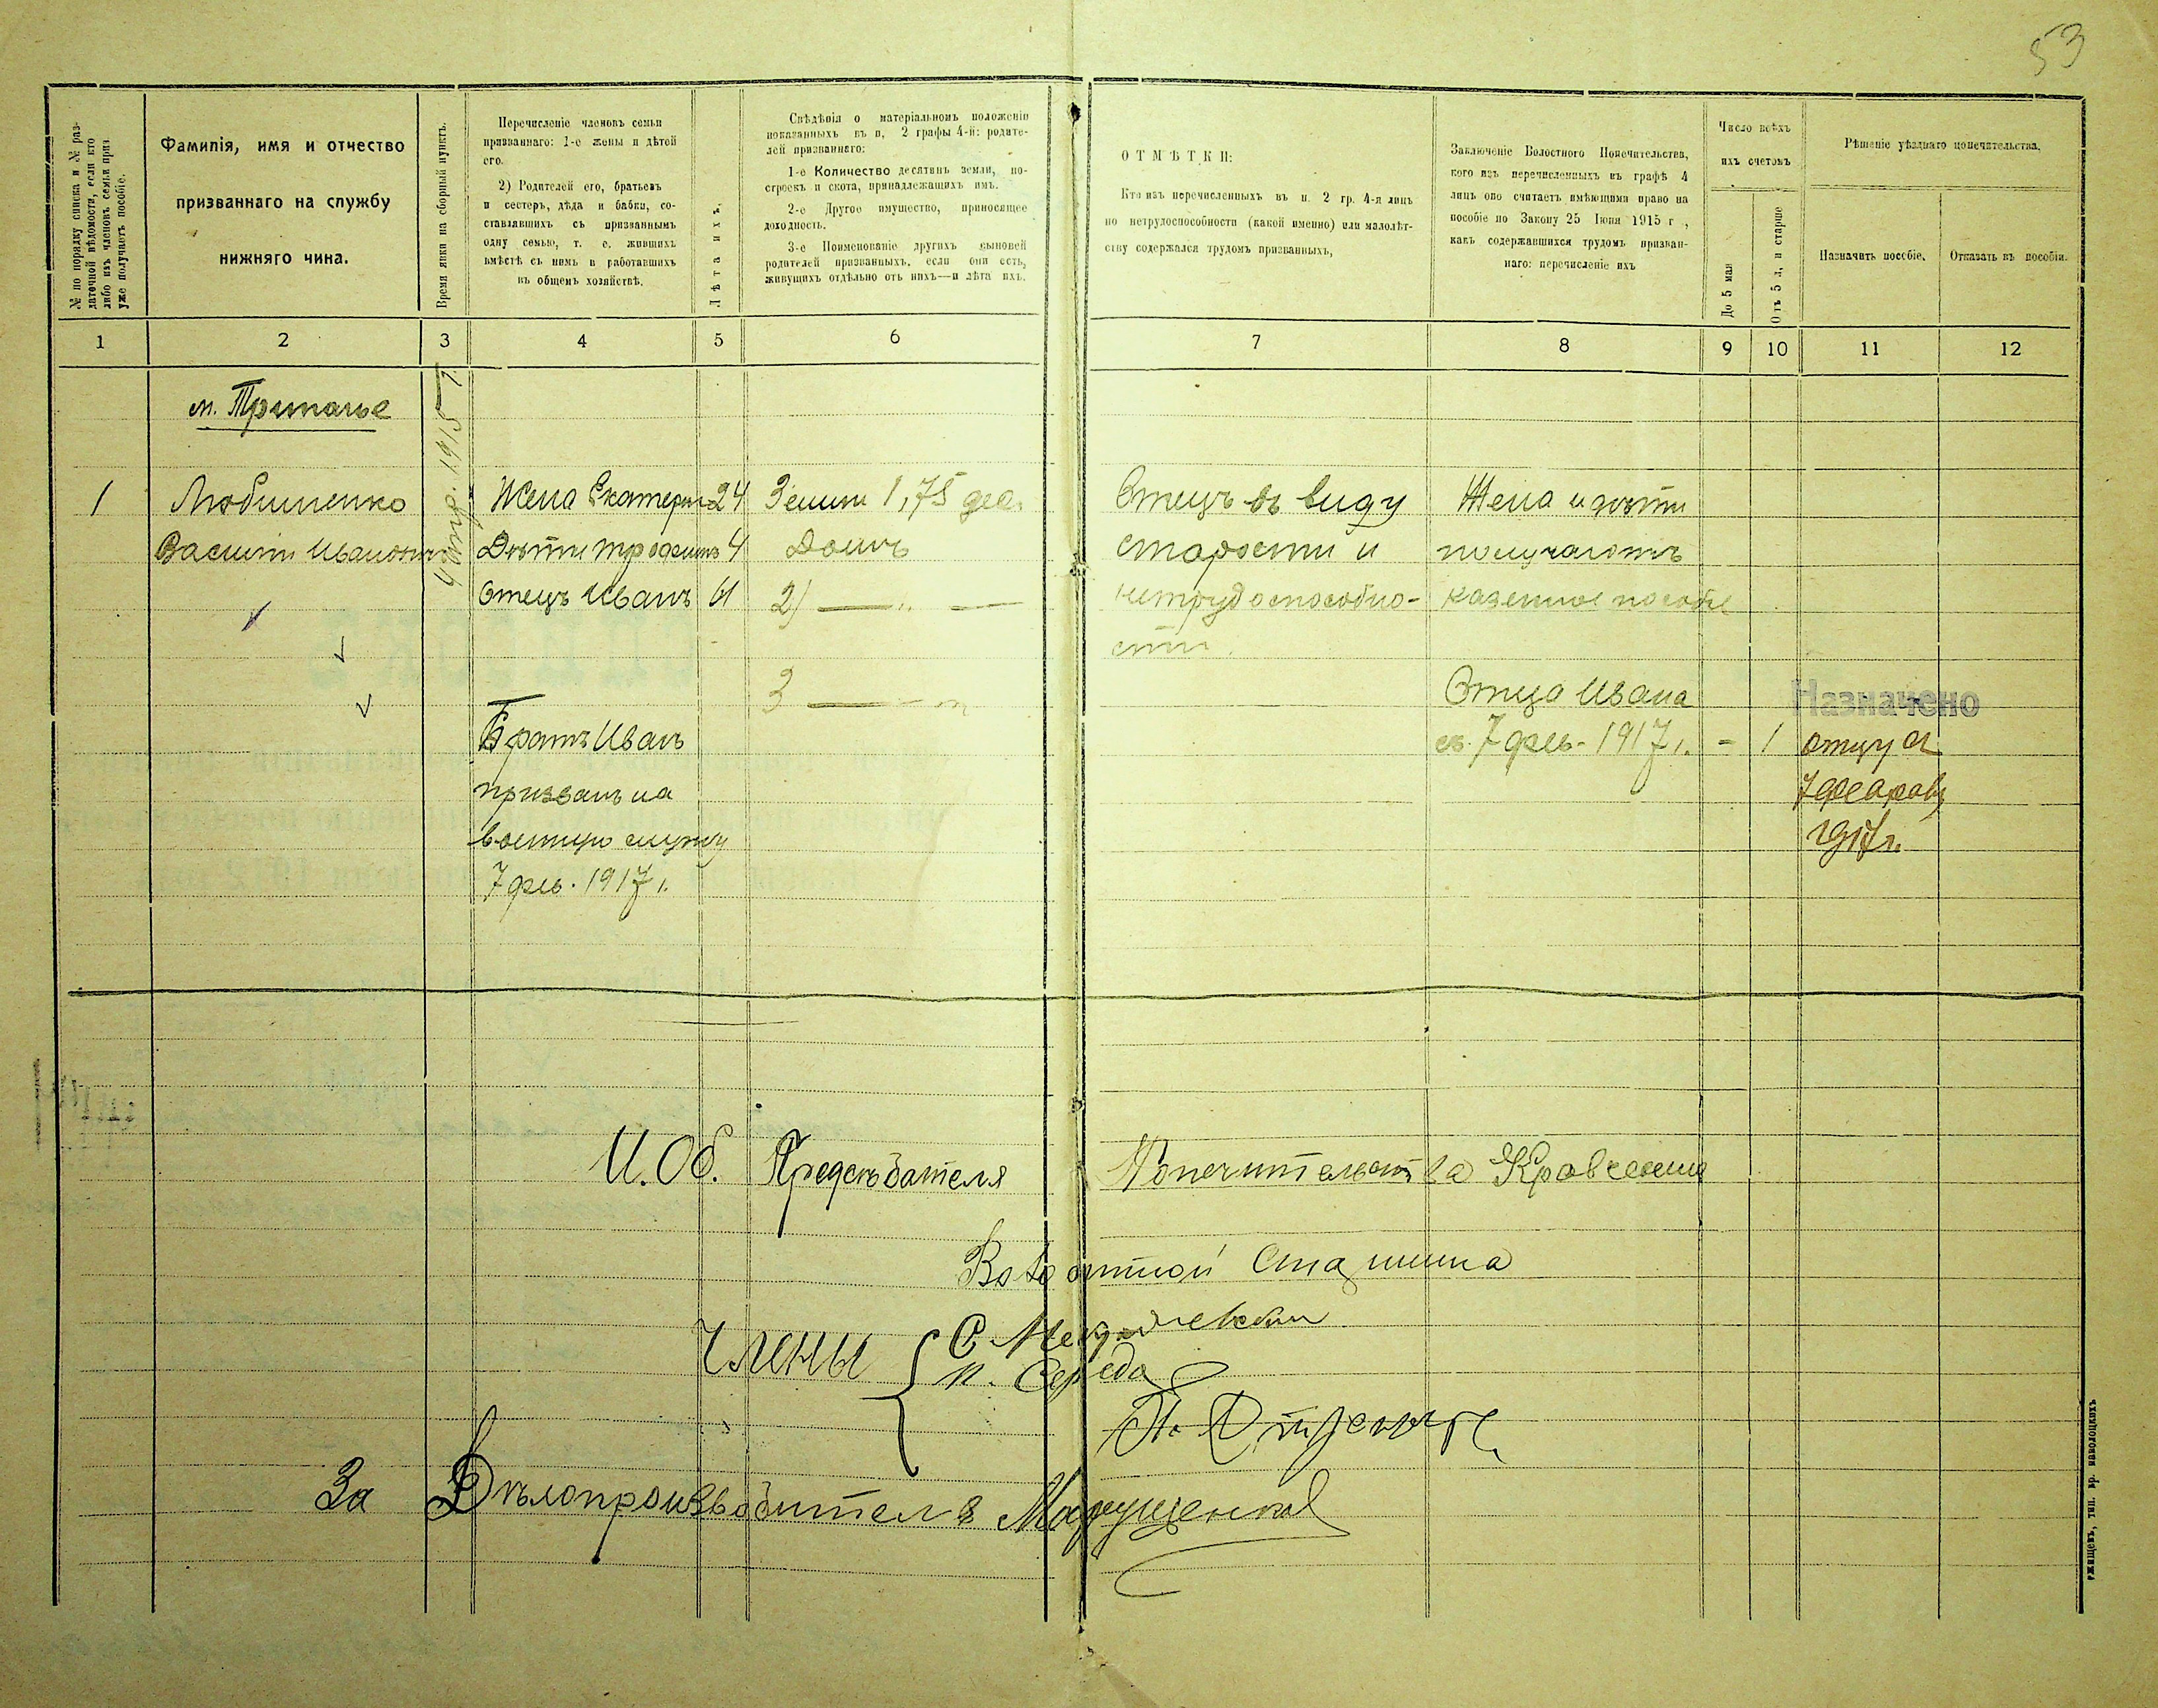 53
№ по порядку списка и № раз-
даточной вѣдомости, если кто
либо изъ членовъ семьи приз
уже получаетъ пособіе.
Фамилія, имя и отчество
призваннаго на службу
нижняго чина.
Время явки на сборный пунктъ.
Перечисленіе членовъ семьи
призваннаго: 1-е жены и дѣтей
его.
2) Родителей его, братьевъ
и сестеръ, дѣда и бабки, со-
ставлявшихъ съ призваннымъ
одну семью, т. е. жившихъ
вмѣстѣ съ нимъ и работавшихъ
въ общемъ хозяйствѣ.
Лѣта ихъ.
Свѣдѣнія о матеріальномъ положеніи
показанныхъ въ п, 2 графы 4-й: родите-
лей призваннаго:
1-е Количество десятинъ земли, по-
строекъ и скота, принадлежащихъ имъ.
2-е Другое имущество, приносящее
доходность.
3-е Поименованіе другихъ сыновей
родителей призванныхъ, если они есть,
живущихъ отдѣльно отъ нихъ—и лѣта ихъ.
ОТМѢТКИ:
Кто изъ перечисленныхъ въ п. 2 гр. 4-я лицъ
по нетрудоспособности (какой именно) или малолѣт-
ству содержался трудомъ призванныхъ,
Заключеніе Волостного Попечительства,
кого изъ перечисленныхъ въ графѣ 4
лицъ оно считаетъ имѣющими право на
пособіе по Закону 25 Іюня 1915 г ,
какъ содержавшихся трудомъ призван-
наго: перечисленіе ихъ
Число всѣхъ
ихъ счетовъ
До 5 мая
Отъ 5 л, и старше
Рѣшеніе уѣзднаго попечительства.
Назначить пособіе.
Отказать въ пособіи.
1 2 3 4 5 6 7 8 9 10 11 12
м. Триполье
1915 г.
1 Любименко Жена Екатерин 24 Земли 1,75 дес. Отецъ въ виду Жена и дѣти
Василій Ивановичъ Дѣти Трофимъ 4 Домъ старости и получаютъ
Отецъ Иванъ 61 2) — „ — нетрудоспособно- казенное пособіе
сти.
3 — „
Отца Ивана Назначено
Братъ Иванъ съ 7 фев. 1917 г. - 1 отцу съ
призванъ на 7 февраля
военную службу 1917 г.
7 фев. 1917 г.
И. Об. Предсѣдателя Попечительства Кравченко
Волостной Старшина
Члены
Середа
За Дѣлопроизводителя Марущенко
ржищевъ, тип. бр. наволоцкихъ